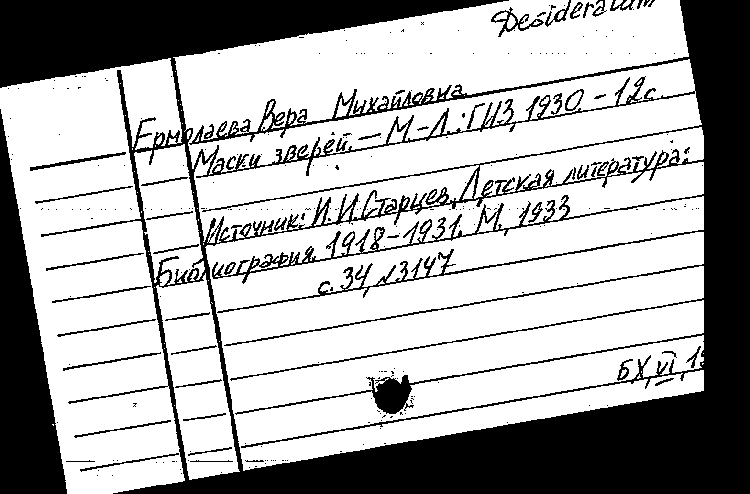 Desideratum
Ермолаева, Вера Михайловна.
Маски зверей. — М.-Л.: ГИЗ, 1930. - 12с.
Источник: И.И.Старцев, Детская литература:
Библиография. 1918-1931. М., 1933
с. 34, №3147
БX, VI,